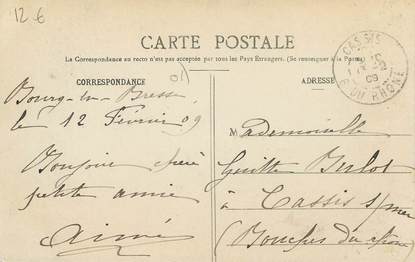 12.6
CARTE POSTALE
La Correspondance au recto n'est pas acceptée par tous les Pays Etrangers. (Se renseigner à la Poste)
CORRESPONDANCE
ADRESSE
CASSIS
B. DU RHONE
09
Bourg-en-Bresse
le 12 Février 09
Bonjour chère
petite amie
Aimé
Mademoiselle
à Cassis s/mer
(Bouches du Rhône